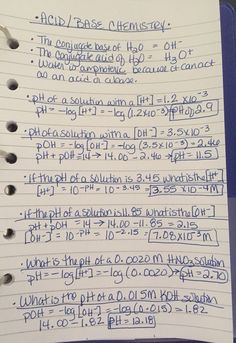 • ACID/BASE CHEMISTRY •
• The conjugate base of H₂O = OH⁻
• The conjugate acid of H₂O = H₃O⁺
• Water is amphoteric because it can act
as an acid or a base.
• pH of a solution with a [H⁺] = 1.2 x 10⁻³
pH = -log[H⁺] = -log(1.2x10⁻³) pH of 2.9
• pH of a solution with a [OH⁻] = 3.5x10⁻³
pOH = -log[OH⁻] = -log(3.5x10⁻³) = 2.46
pH + pOH = 14 → 14.00 - 2.46 → pH = 11.5
• If the pH of a solution is 3.45 what is the [H⁺]
[H⁺] = 10^-pH = 10^-3.45 = 3.55 x 10⁻⁴ M
• if the pH of a solution is 11.85 what is the [OH⁻]
pH + pOH = 14 → 14.00 - 11.85 = 2.15
[OH⁻] = 10^-pOH = 10^-2.15 = 7.08x10⁻³ M
• What is the pH of a 0.0020 M HNO₃ solution
pH = -log[H⁺] = -log(0.0020) → pH = 2.70
• What is the pH of a 0.015 M KOH solution
pOH = -log[OH⁻] = -log(0.015) = 1.82
14.00 - 1.82 pH = 12.18